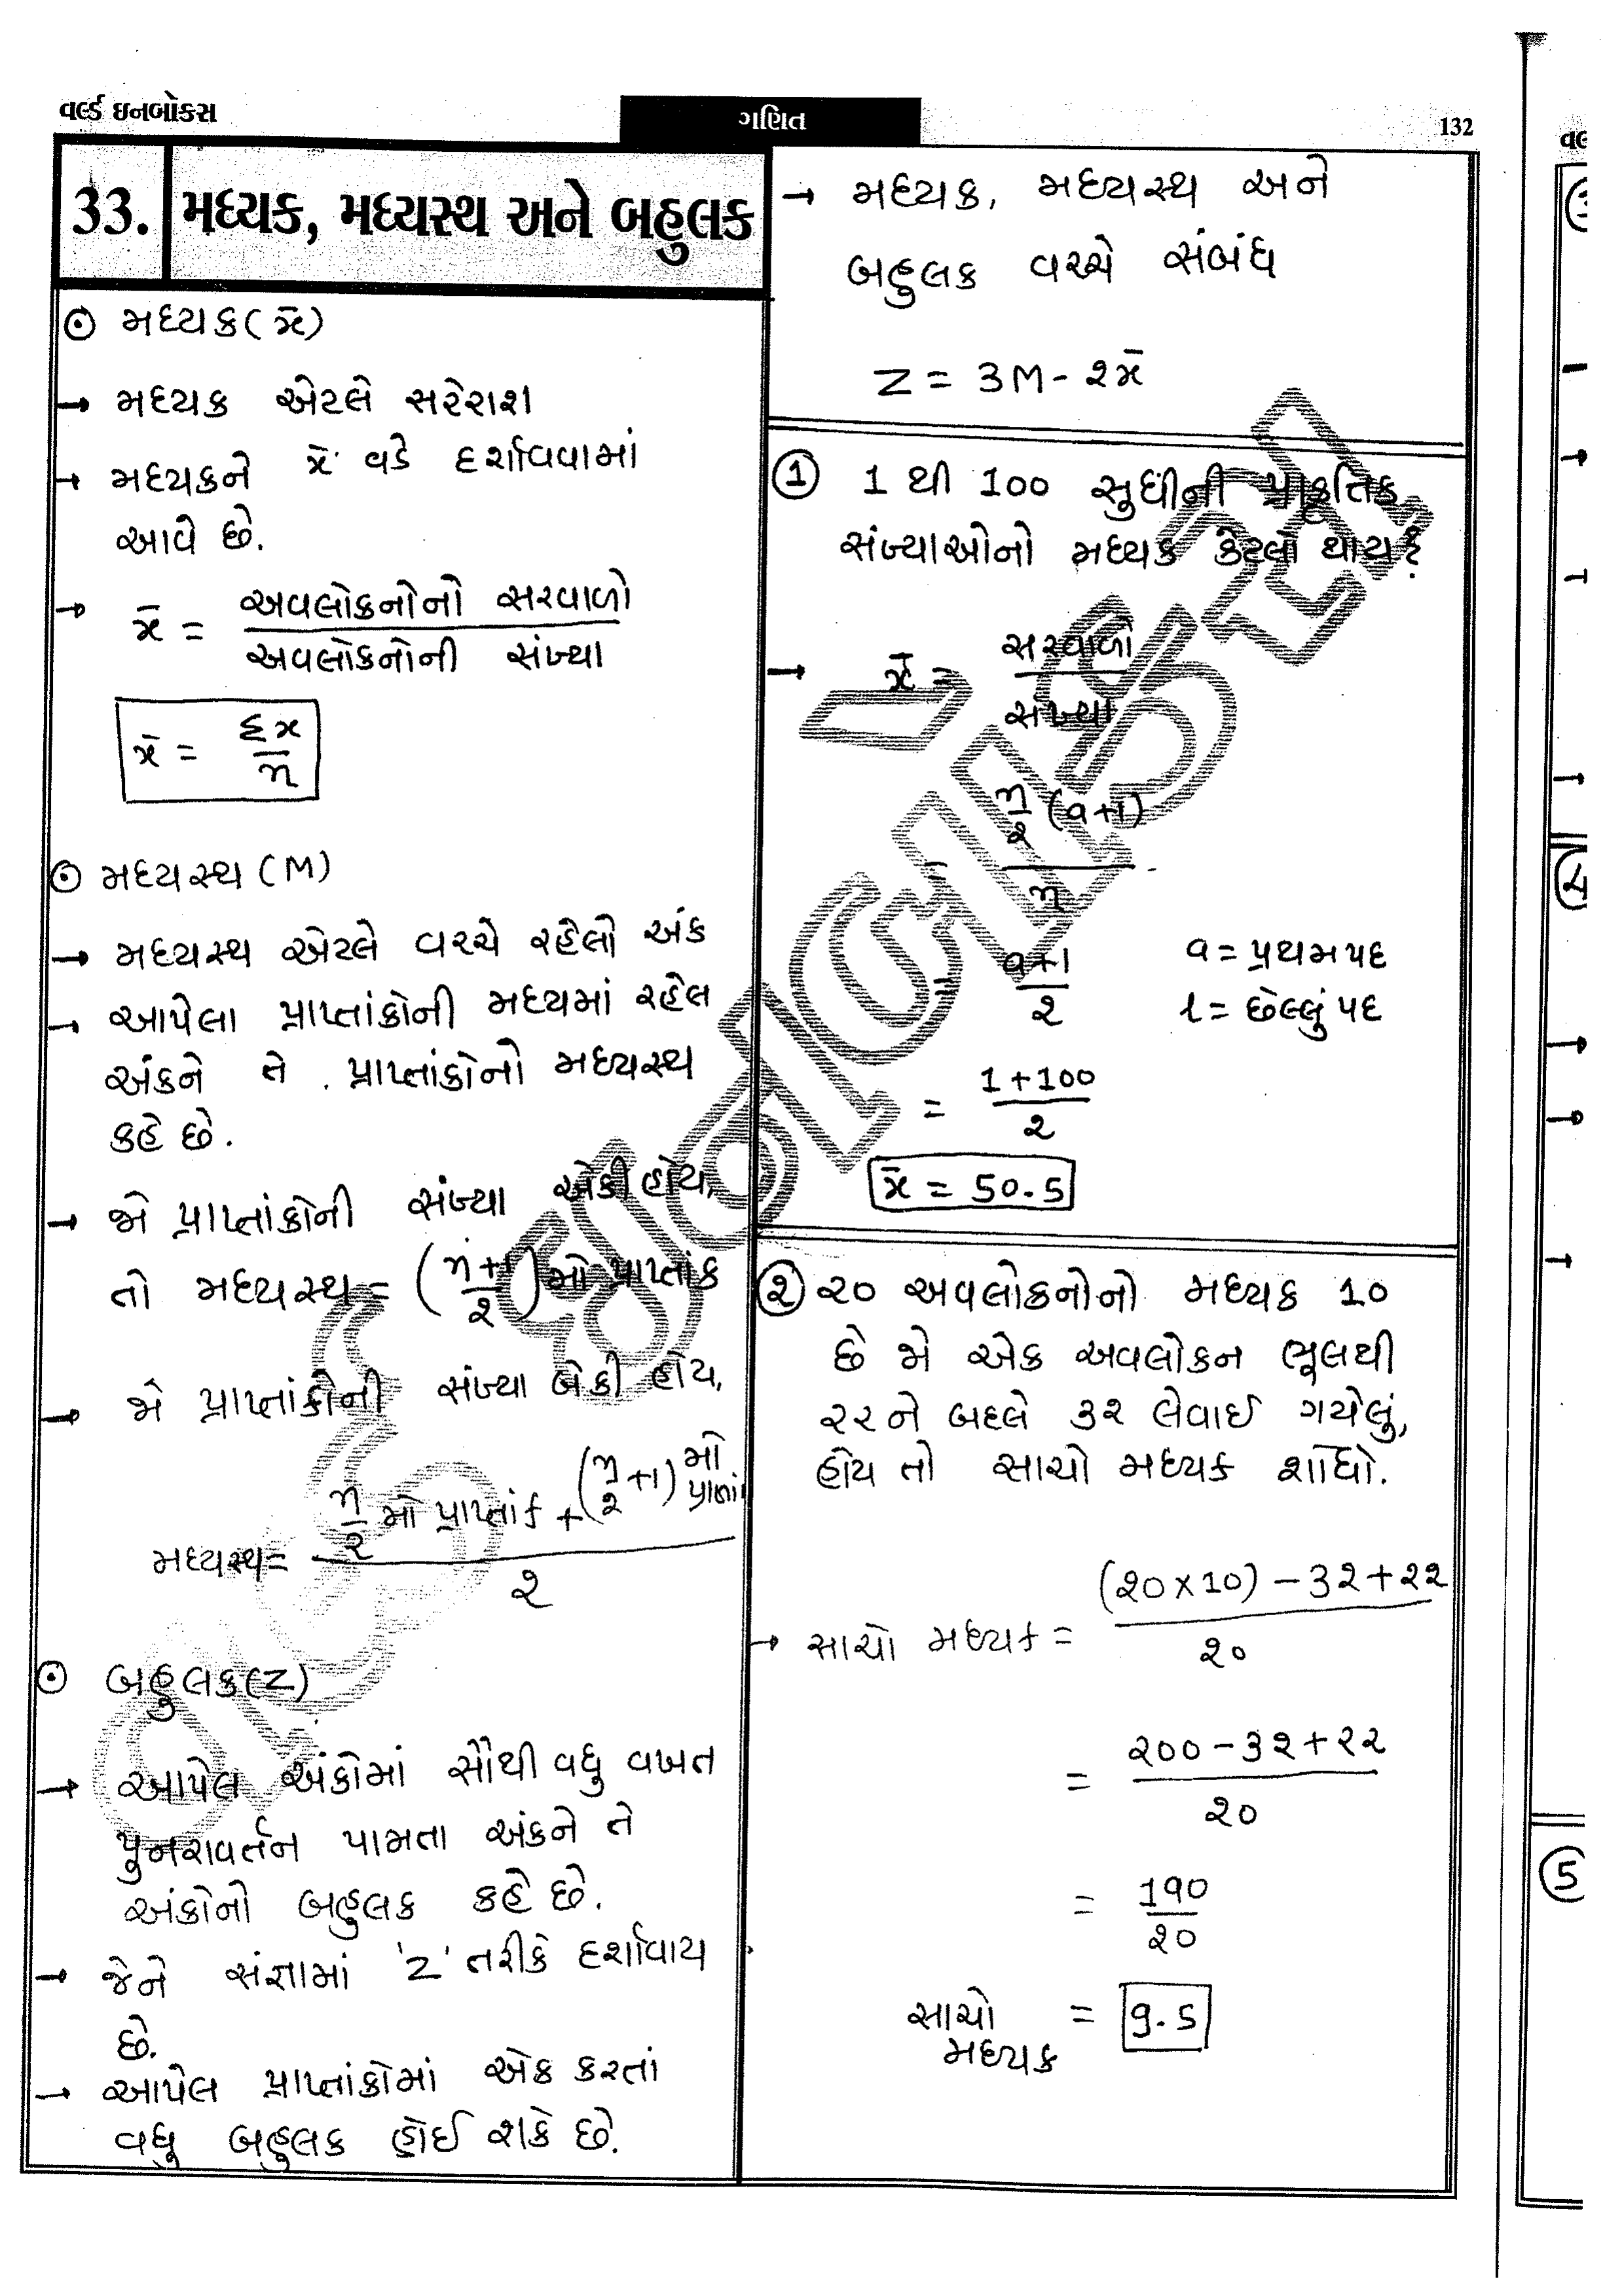 વર્લ્ડ ઇનબોક્સ
ગણિત
132
33. મધ્યક, મધ્યસ્થ અને બહુલક
⊙ મધ્યક (x̄)
→ મધ્યક એટલે સરેરાશ
→ મધ્યકને x̄ વડે દર્શાવવામાં
આવે છે.
→ x̄ = અવલોકનોનો સરવાળો / અવલોકનોની સંખ્યા
x̄ = Σx / n
⊙ મધ્યસ્થ (M)
→ મધ્યસ્થ એટલે વચ્ચે રહેલો અંક
→ આપેલા પ્રાપ્તાંકોની મધ્યમાં રહેલ
અંકને તે પ્રાપ્તાંકોનો મધ્યસ્થ
કહે છે.
→ જો પ્રાપ્તાંકોની સંખ્યા એકી હોય,
તો મધ્યસ્થ = (n+1 / ૨) મો પ્રાપ્તાંક
→ જો પ્રાપ્તાંકોની સંખ્યા બેકી હોય,
મધ્યસ્થ = n/૨ મો પ્રાપ્તાંક + (n/૨ +1) મો / ૨
⊙ બહુલક (Z)
→ આપેલ અંકોમાં સૌથી વધુ વખત
પુનરાવર્તન પામતા અંકને તે
અંકોનો બહુલક કહે છે.
→ જેને સંજ્ઞામાં 'Z' તરીકે દર્શાવાય
છે.
→ આપેલ પ્રાપ્તાંકોમાં એક કરતાં
વધુ બહુલક હોઈ શકે છે.
→ મધ્યક, મધ્યસ્થ અને
બહુલક વચ્ચે સંબંધ
Z = 3M - ૨x̄
① 1 થી 100 સુધીની પ્રાકૃતિક
સંખ્યાઓનો મધ્યક કેટલો થાય?
→ x̄ = સરવાળો / સંખ્યા
= n/૨ (a+l) / n
= a+l / ૨
a = પ્રથમ પદ
l = છેલ્લું પદ
= 1+100 / ૨
x̄ = 50.5
(૨) ૨૦ અવલોકનોનો મધ્યક 10
છે જો એક અવલોકન ભૂલથી
૨૨ને બદલે ૩૨ લેવાઈ ગયેલું,
હોય તો સાચો મધ્યક શોધો.
→ સાચો મધ્યક = (૨૦ x 10) - 3૨ + ૨૨ / ૨૦
= ૨૦૦ - 3૨ + ૨૨ / ૨૦
= 190 / ૨૦
સાચો મધ્યક = 9.5
5